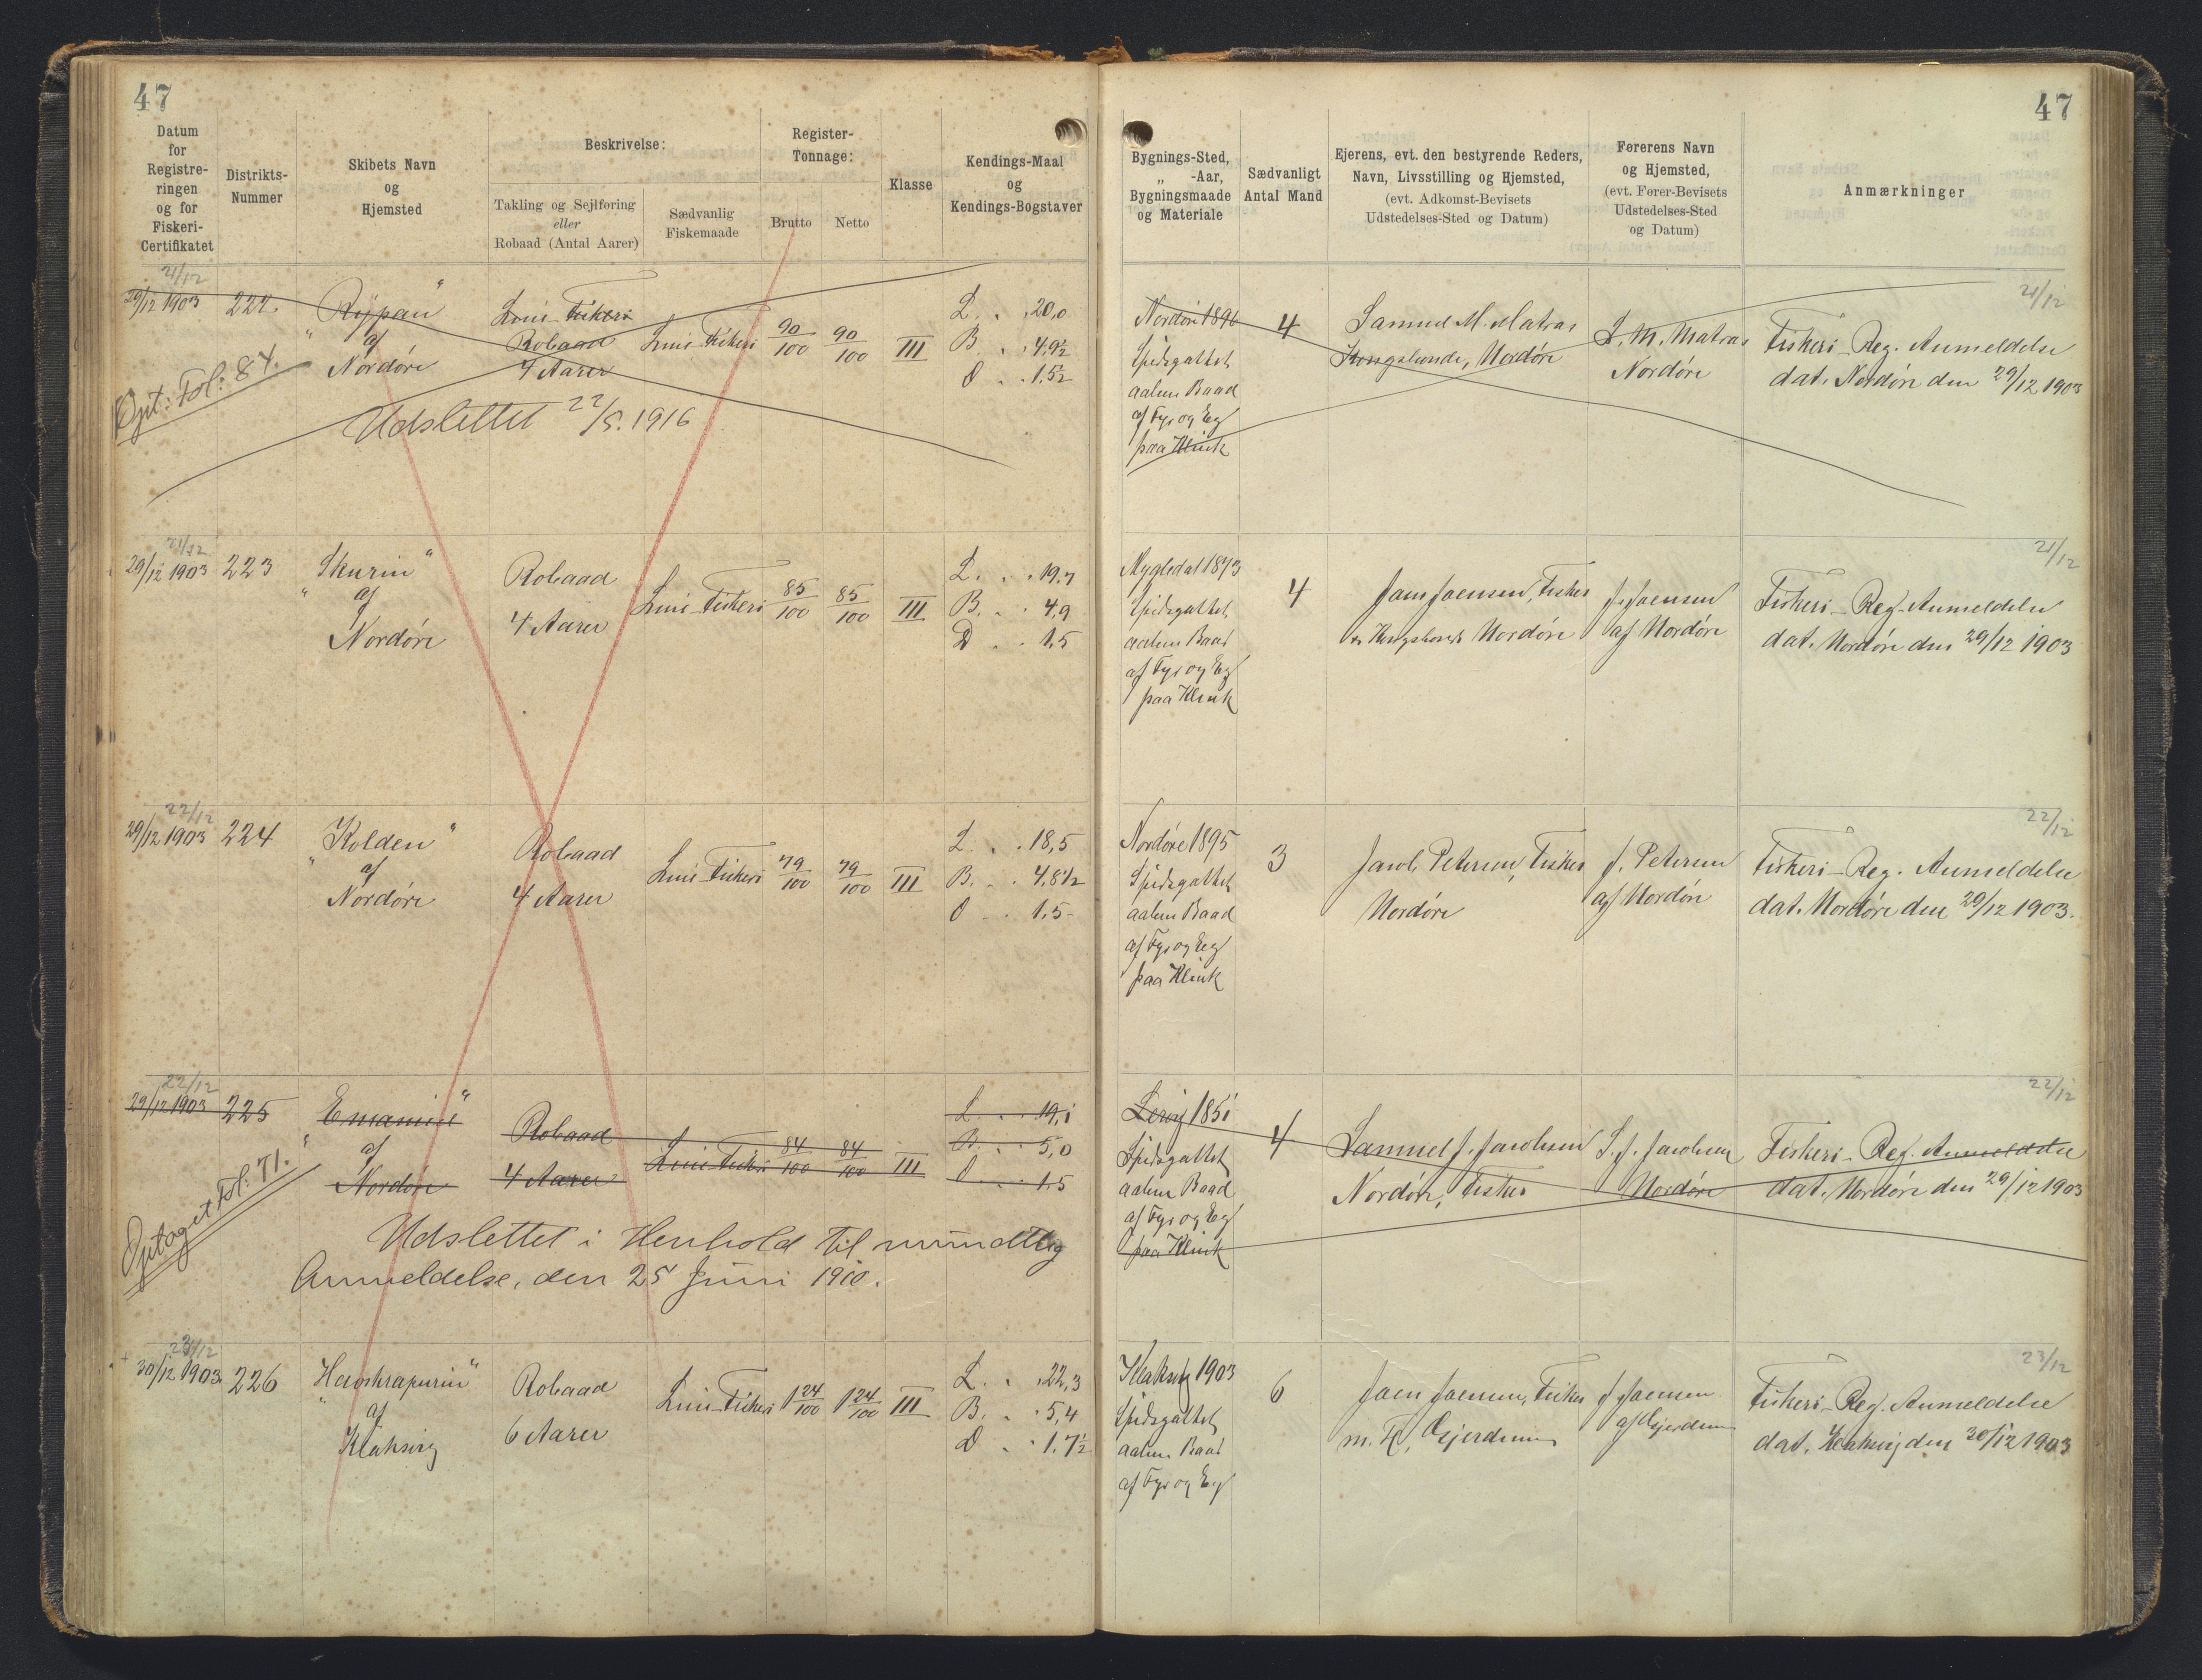 47
Datum
for
Registre-
ringen
og for
Fiskeri-
Certifikatet
Distrikts-
Nummer
Skibets Navn
og
Hjemsted
Beskrivelse:
Takling og Sejlføring
eller
Robaad (Antal Aarer)
Sædvanlig
Fiskemaade
Register-
Tonnage:
Brutto
Netto
Klasse
Kendings-Maal
og
Kendings-Bogstaver
21/12
29/12 1903
222.
"Rijpan"
af
Nordøre
Line Fiskeri
Robaad
4 Aarer
Line Fiskeri
90/100
90/100
III
L. . . 20,0
B. . . 4,9½
D . . 1,5½
Opt: Fol: 84.
Udslettet 22/5. 1916
21/12
29/12 1903
223
"Skurin"
af
Nordøre
Robaad
4 Aarer
Line-Fiskeri
85/100
85/100
III
L. . . 19,7
B. . . 4,9
D . . 1,5
22/12
29/12 1903
224
"Kolden"
af
Nordøre
Robaad
4 Aarer
Line-Fiskeri
79/100
79/100
III
L. . . 18,5
B. . . 4,8½
D . . 1,5
22/12
29/12 1903
225
af
Nordøre
Robaad
4 Aarer
Line Fiskeri
84/100
84/100
III
L . . 19,1
B. . . 5,0
D . . 1,5
Optaget Fol: 71.
Udslettet i Henhold til mundtlig
Anmeldelse, den 25 Juni 1910.
23/12
30/12 1903
226
af
Klaksvig
Robaad
6 Aarer
Line-Fiskeri
1 24/100
1 24/100
III
L . . 22,3
B. . . 5,4
D . . 1,7½
47
Bygnings-Sted,
„ -Aar,
Bygningsmaade
og Materiale
Sædvanligt
Antal Mand
Ejerens, evt. den bestyrende Reders,
Navn, Livsstilling og Hjemsted,
(evt. Adkomst-Bevisets
Udstedelses-Sted og Datum)
Førerens Navn
og Hjemsted,
(evt. Fører-Bevisets
Udstedelses-Sted
og Datum)
Anmærkninger
Nordøre 1896
Spidsgattet
aaben Baad
af Fyr og Eg
paa Klink
4
Samuel M. Matras
Kongsbonde, Nordøre
S. M. Matras
Nordøre
21/12
Fiskeri-Reg. Anmeldelse
dat. Nordøre den 29/12 1903
Mygledal 1873
Spidsgattet
aaben Baad
af Fyr og Eg
paa Klink
4
Joen Joensen, Fisker
Nordøre
J. Joensen
af Nordøre
21/12
Fiskeri-Reg. Anmeldelse
dat. Nordøre den 29/12 1903
Nordøre 1895
Spidsgattet
aaben Baad
af Fyr og Eg
paa Klink
3
Jacob Petersen, Fisker
Nordøre
J. Petersen
af Nordøre
22/12
Fiskeri-Reg. Anmeldelse
dat. Nordøre den 29/12 1903.
Spidsgattet
aaben Baad
af Fyr og Eg
paa Klink
4
Samuel J. Jacobsen
Nordøre, Fisker
S. J. Jacobsen
Nordøre
22/12
Fiskeri-Reg. Anmeldelse
dat. Nordøre den 29/12 1903
Klaksvig 1903
Spidsgattet
aaben Baad
af Fyr og Eg
6
Joen Joensen, Fisker
m. F., Gjerdum
J Joensen
af Gjerdum
23/12
Fiskeri-Reg. Anmeldelse
dat. Klaksvig den 30/12 1903